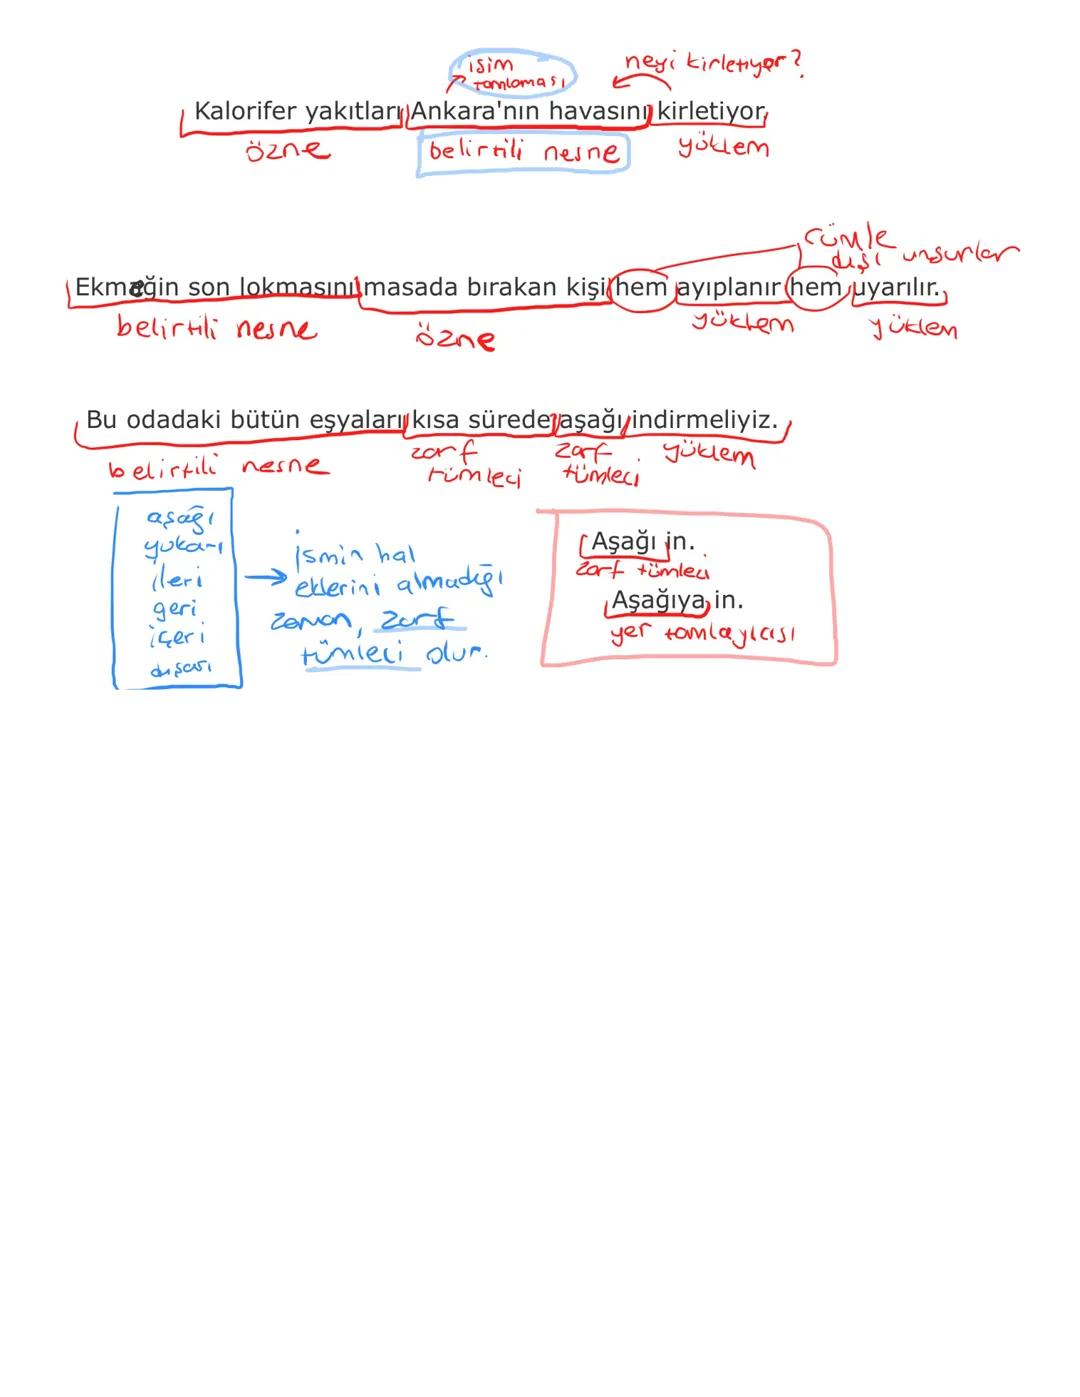 isim
tamlaması
neyi kirletiyor?
Kalorifer yakıtları Ankara'nın havasını kirletiyor.
özne belirtili nesne yüklem
cümle
dışı unsurlar
Ekmeğin son lokmasını masada bırakan kişi hem ayıplanır hem uyarılır.
belirtili nesne özne yüklem yüklem
Bu odadaki bütün eşyaları kısa sürede aşağı indirmeliyiz.
belirtili nesne zarf tümleci zarf tümleci yüklem
aşağı
yukarı
ileri
geri
içeri
dışarı
İsmin hal
eklerini almadığı
zaman, zarf
tümleci olur.
Aşağı in.
zarf tümleci
Aşağıya in.
yer tamlayıcısı